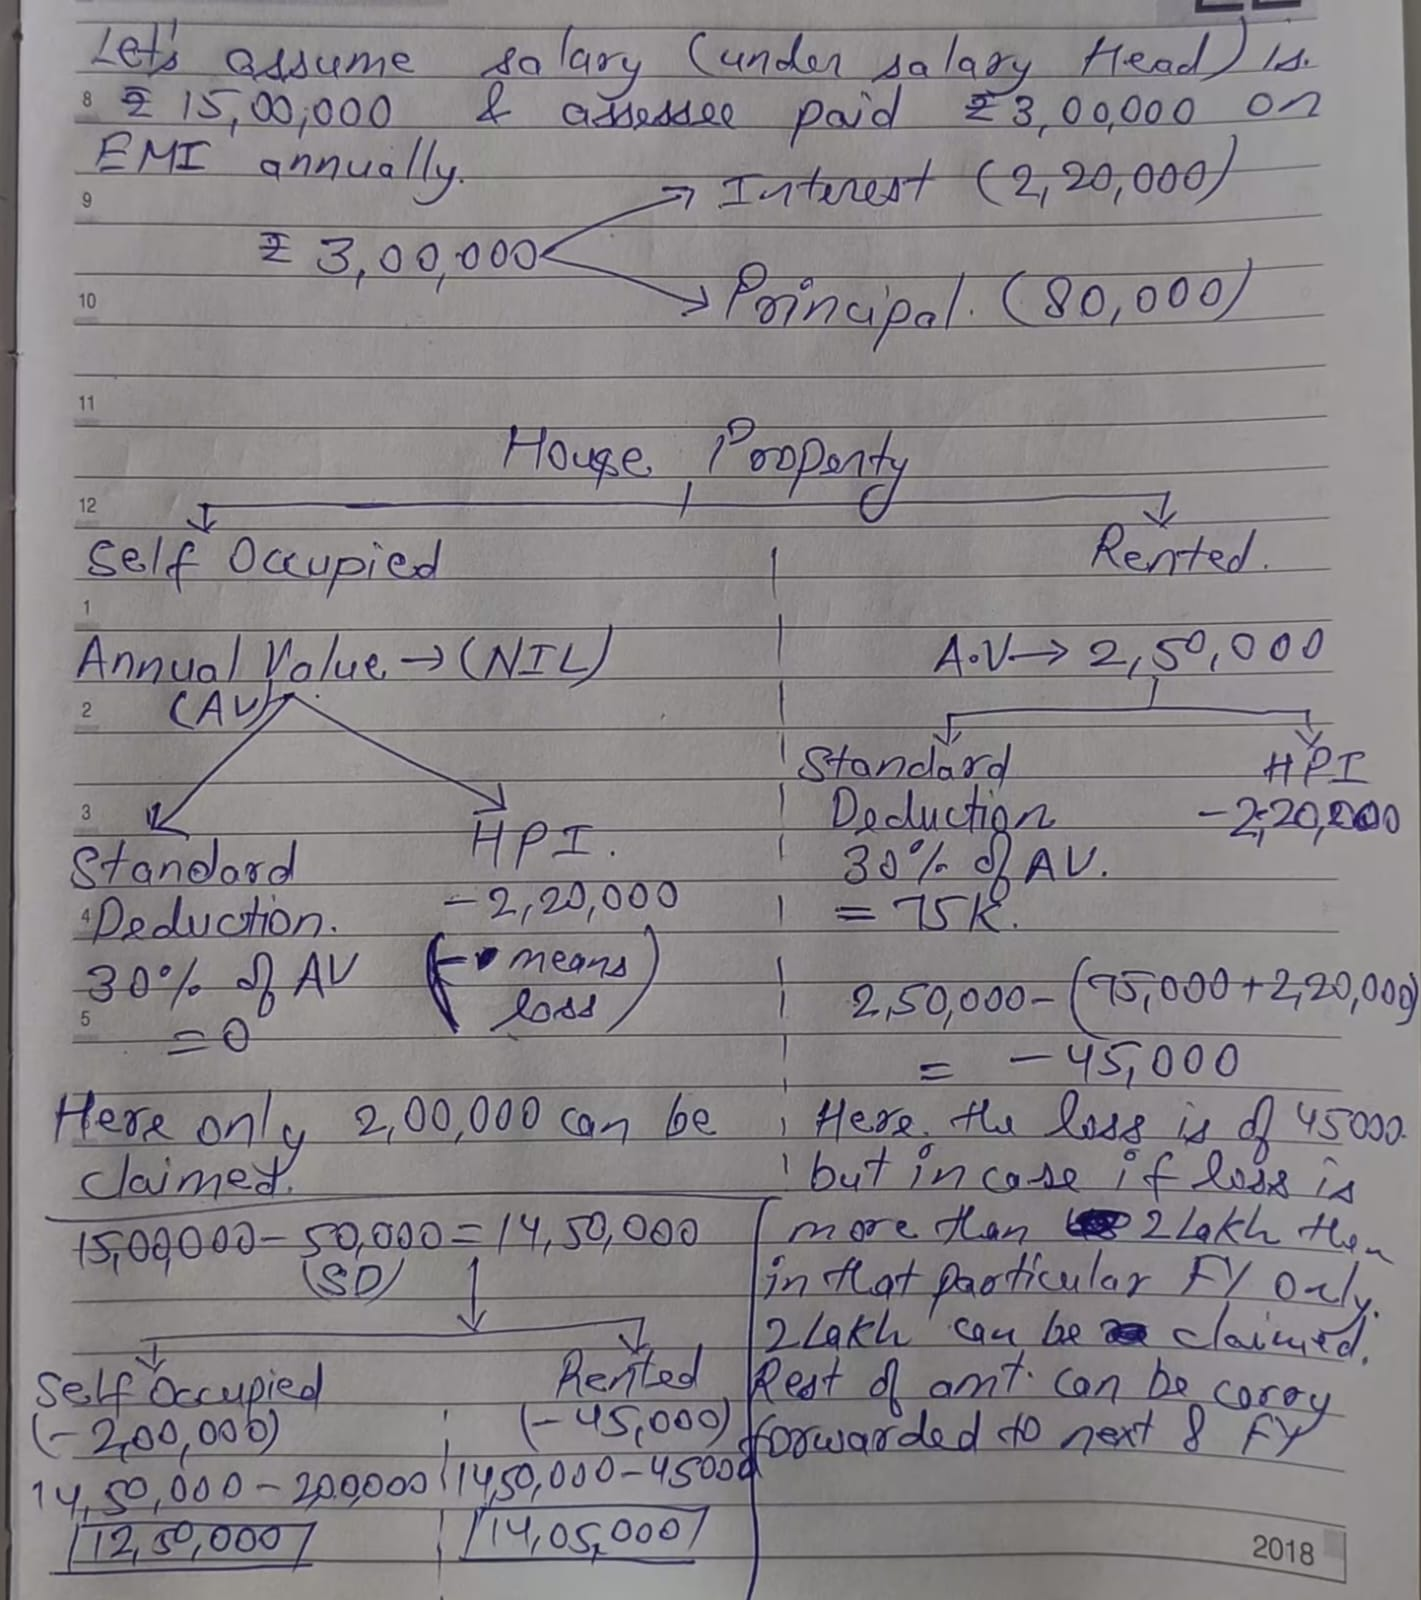 Let's assume salary (under salary Head) is.
8 ₹ 15,00,000 & assessee paid ₹ 3,00,000 on
EMI annually.
9 → Interest (2,20,000)
₹ 3,00,000
10 → Principal. (80,000)
11
House Property
12
Self Occupied
Rented.
1
Annual Value → (NIL)
(AV)
2
3
Standard
4 Deduction.
30% of AV
5
= 0
HPI.
-2,20,000
(- means
loss)
Here only 2,00,000 can be
claimed.
A.V → 2,50,000
Standard
Deduction
30% of AV.
= 75K.
HPI
-2,20,000
2,50,000 - (75,000 + 2,20,000)
= - 45,000
Here, the loss is of 45000.
but in case if loss is
more than 2 Lakh then
in that particular FY only.
2 Lakh can be claimed.
Rest of amt. can be carry
forwarded to next 8 FY
15,00,000 - 50,000 = 14,50,000
(SD)
Self Occupied
(-2,00,000)
14,50,000 - 200,000
12,50,000
Rented
(-45,000)
14,50,000 - 45000
14,05,000
2018